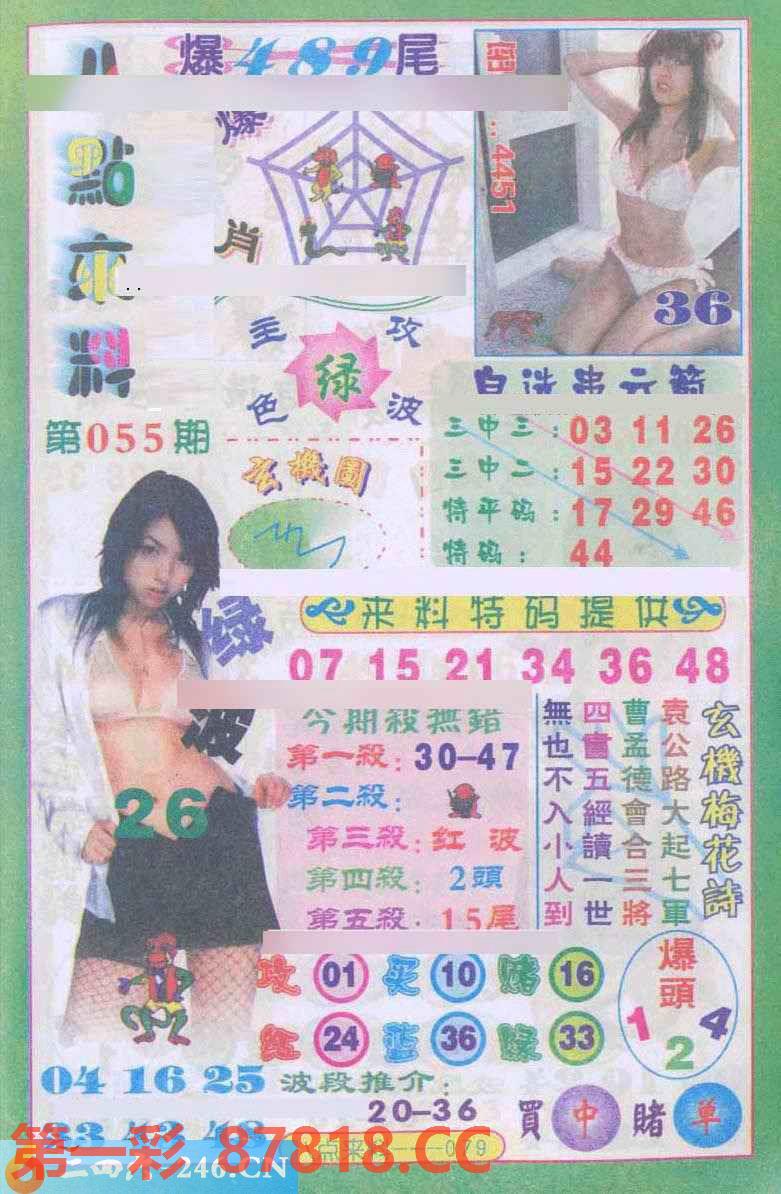 爆489尾
爆
肖
點來料
第055期
4451
36
主攻
绿
色波
玄機圖
三中三：03 11 26
三中二：15 22 30
特平码：17 29 46
特码：44
来料特码提供
07 15 21 34 36 48
波
今期殺無錯
第一殺：30-47
第二殺：
第三殺：红波
第四殺：2頭
第五殺：1.5尾
26
玄機梅花詩
袁公路大起七軍
曹孟德會合三將
四書五經讀一世
無也不入小人到
攻 01 买 10 赌 16
红 24 蓝 36 绿 33
爆頭
1 2 4
04 16 25
波段推介：
20-36
買中賭单
第一彩 87818.CC
246.CN